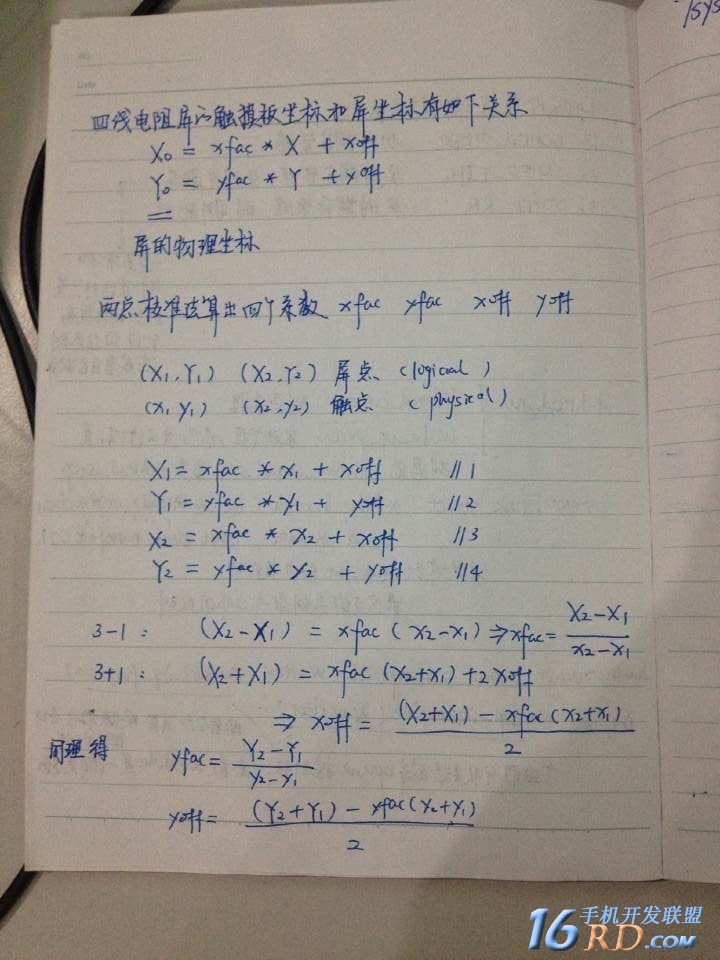 /sys
四线电阻屏的触摸板坐标和屏坐标有如下关系
X₀ = xfac * X + xoff
Y₀ = yfac * Y + yoff
屏的物理坐标
两点校准法算出四个系数 xfac yfac xoff yoff
(X₁,Y₁) (X₂,Y₂) 屏点 (logical)
(x₁,y₁) (x₂,y₂) 触点 (physical)
X₁ = xfac * x₁ + xoff //1
Y₁ = yfac * y₁ + yoff //2
X₂ = xfac * x₂ + xoff //3
Y₂ = yfac * y₂ + yoff //4
3-1: (X₂-X₁) = xfac (x₂-x₁) ⇒ xfac = (X₂-X₁)/(x₂-x₁)
3+1: (X₂+X₁) = xfac (x₂+x₁) + 2xoff
⇒ xoff = ((X₂+X₁) - xfac(x₂+x₁))/2
同理得 yfac = (Y₂-Y₁)/(y₂-y₁)
yoff = ((Y₂+Y₁) - yfac(y₂+y₁))/2
16手机开发联盟
RD.COM